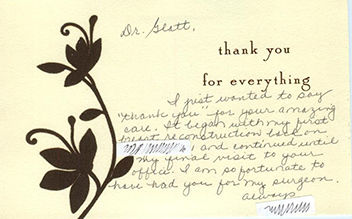 Dr. Glatt,
thank you
for everything
I just wanted to say
"thank you" for your amazing
care. It began with my first
breast reconstruction back on
and continued until
my final visit to your
office. I am so fortunate to
have had you for my surgeon.
Always